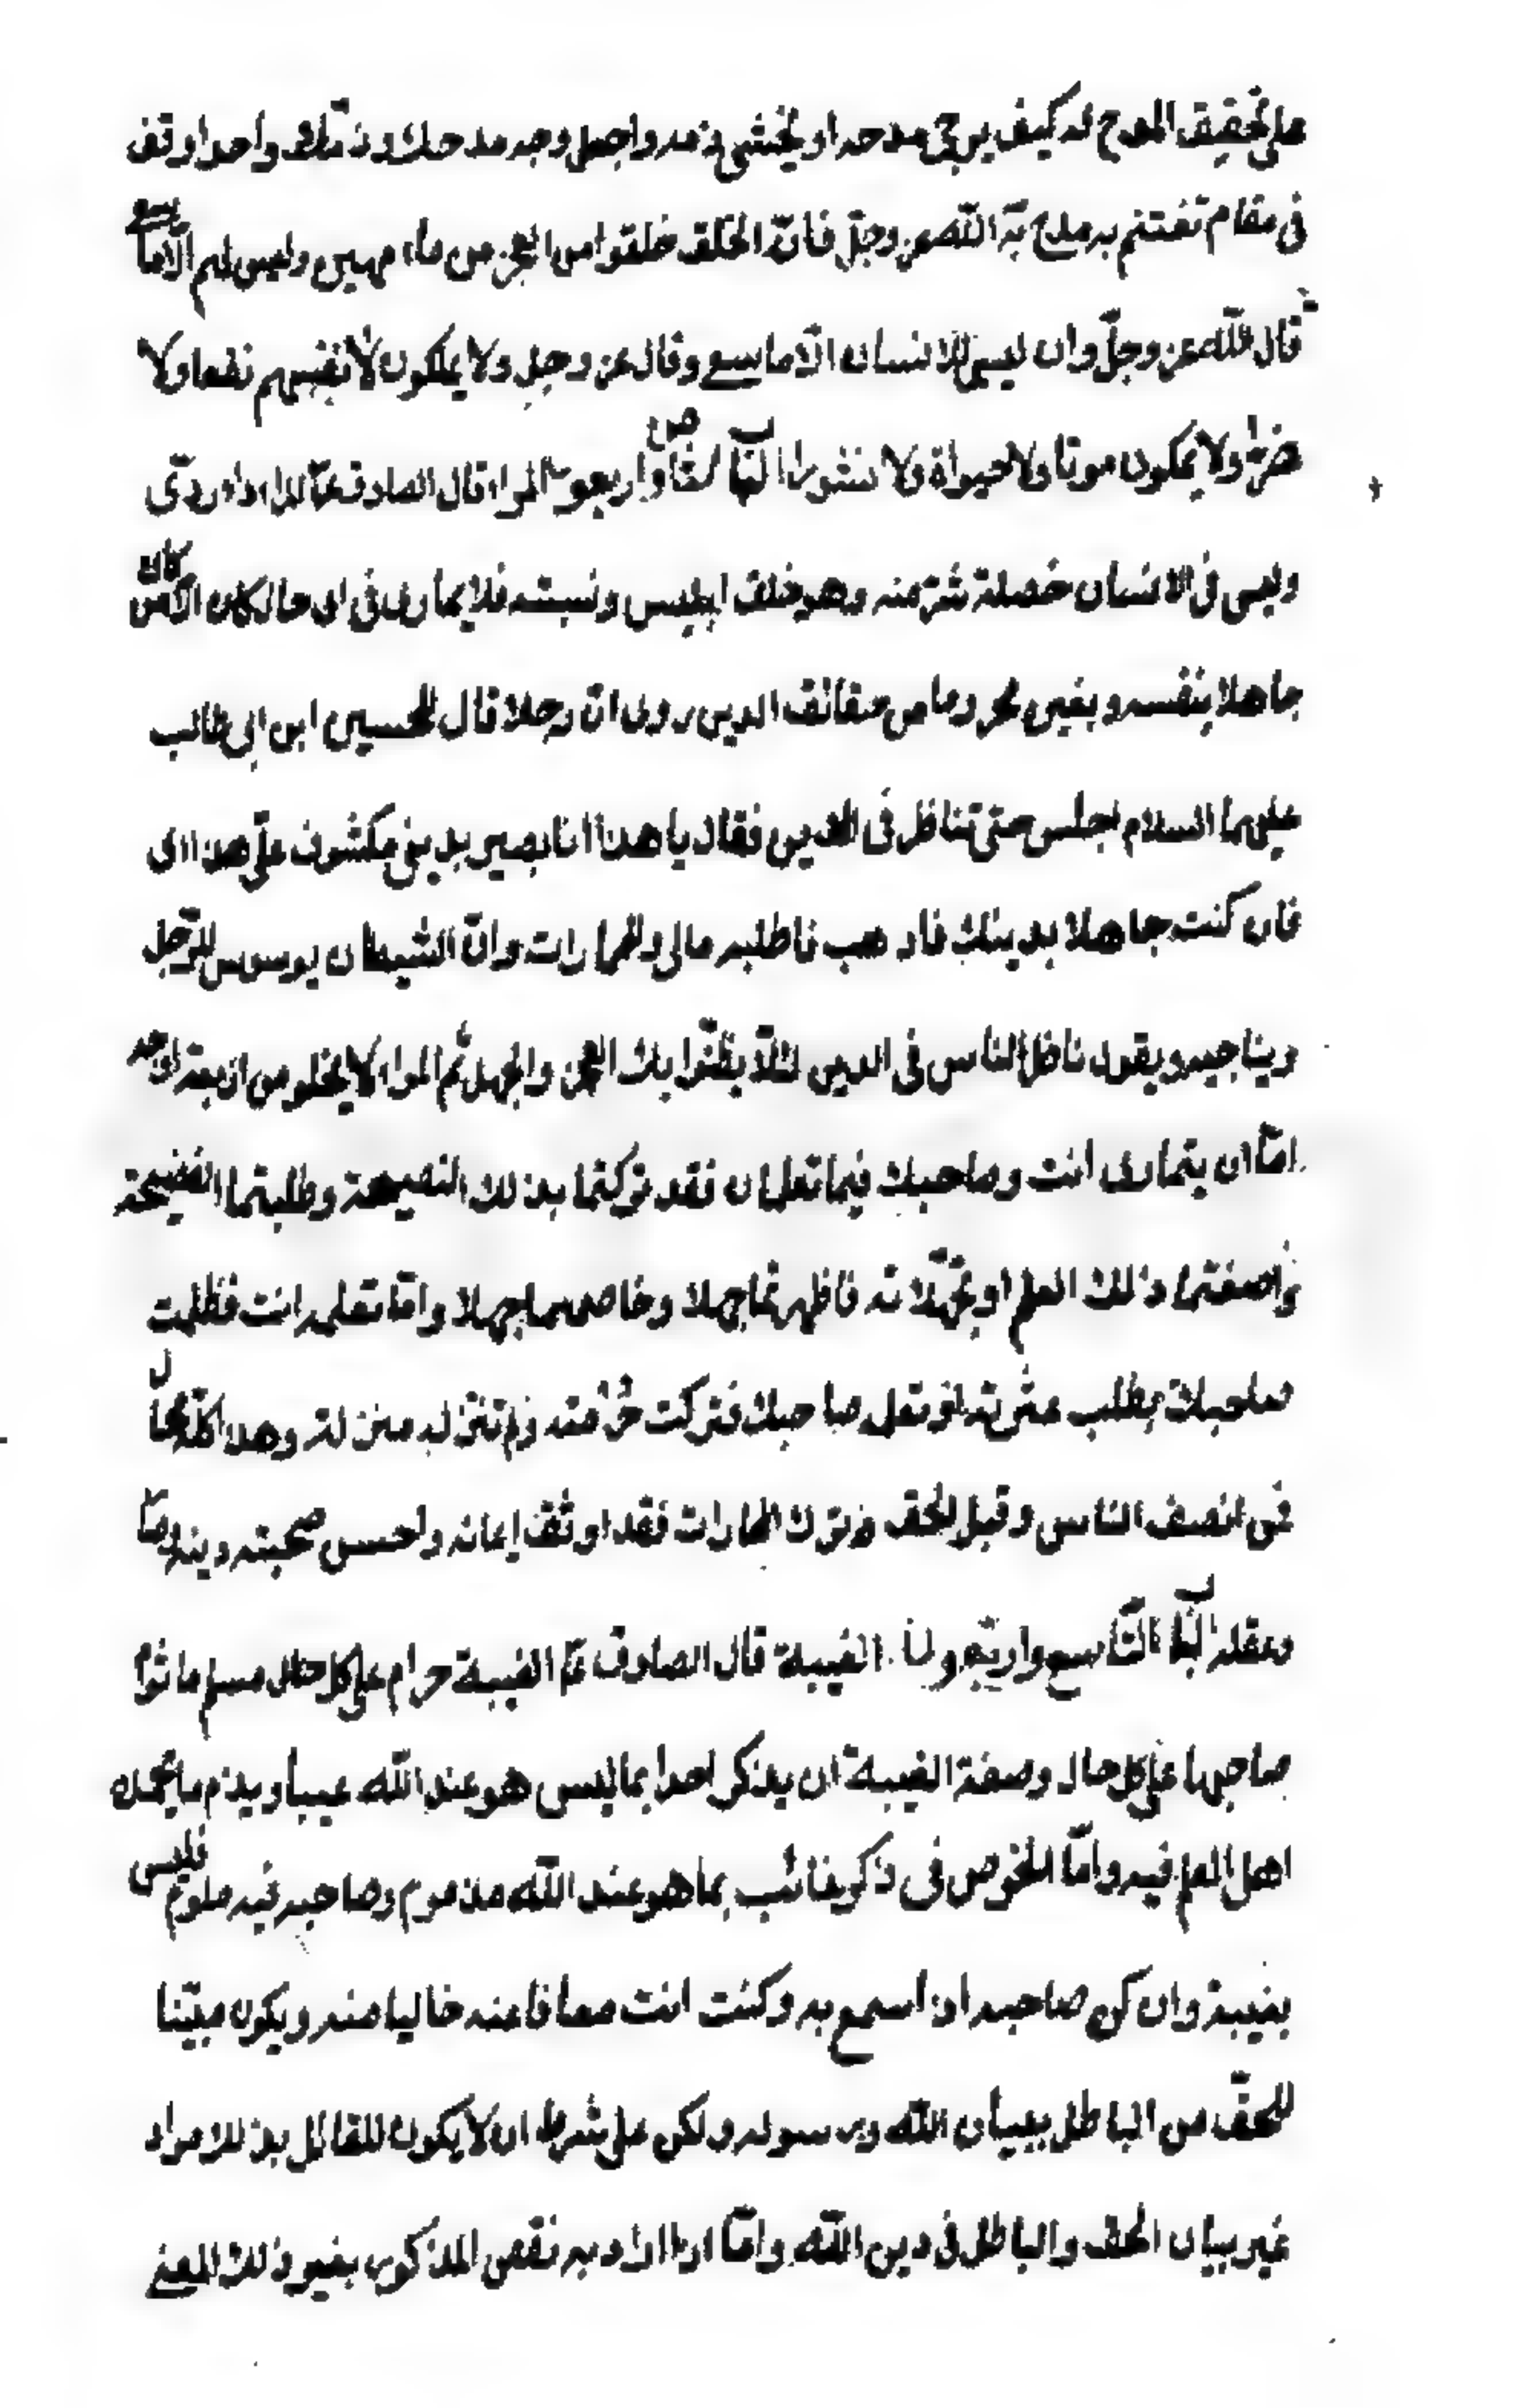 على تحقيق المدح له كيف يرجى مدحه او يخشى ذمه واجعل وجه مدحك وذمك واحدا وقف
فى مقام تغتنم به مدح الله عز وجل فان الخلق خلقوا من العجز من ماء مهين وليس لهم الا ما سعوا
قال الله عز وجل وان ليس للانسان الا ما سعى وقال عز وجل ولا يملكون لأنفسهم نفعا ولا
ضرا ولا يملكون موتا ولا حيوة ولا نشورا الباب الثامن واربعون المراء قال الصادق ع المراء داء ردى
وليس فى الانسان خصلة شر منه وهو خلق ابليس ونسبته فلا يمارى فى اى حال كان الا من كان
جاهلا بنفسه وبغيره محروما من حقائق الدين روى ان رجلا قال للحسين ابن ابى طالب
عليهما السلام اجلس حتى نتناظر فى الدين فقال يا هذا انا بصير بدينى مكشوف على هداى
فان كنت جاهلا بدينك فاذهب فاطلبه مالى وللمارات وان الشيطان يوسوس للرجل
ويناجيه ويقول ناظر الناس فى الدين لئلا يظنوا بك العجز والجهل ثم المراء لا يخلو من اربعة اوجه
اما ان يتمارى انت وصاحبك فيما تعلمان فقد تركتما بذلك النصيحة وطلبتما الفضيحة
واضعتما ذلك العلم او تجهلانه فاظهرتما جهلا وخاصمتما جهلا واما تعلمه انت فظلمت
صاحبك بطلب عثرته او تعلمه صاحبك فتركت حرمته ولم تنزله منزلته وهذا كله محال
فمن انصف الناس وقبل الحق وترك المارات فقد اوثق ايمانه واحسن صحبته دينه وصان
وعقله الباب التاسع واربعون الغيبة قال الصادق ع الغيبة حرام على كل مسلم ماثوم
صاحبها على كل حال وصفة الغيبة ان يذكر احدا بما ليس هو عند الله عيبا ويذم ما يحمده
اهل العلم فيه واما الخوض فى ذكر غائب بما هو عند الله مذموم وصاحبه فيه ملوم فليس
بغيبة وان كره صاحبه اذا سمع به وكنت انت معافا عنه خاليا منه ويكون مبينا
للحق من الباطل ببيان الله ورسوله ولكن على شرط ان لا يكون للقائل بذلك مراد
غير بيان الحق والباطل فى دين الله واما اذا اراد به نقص المذكور بغير ذلك المعنى